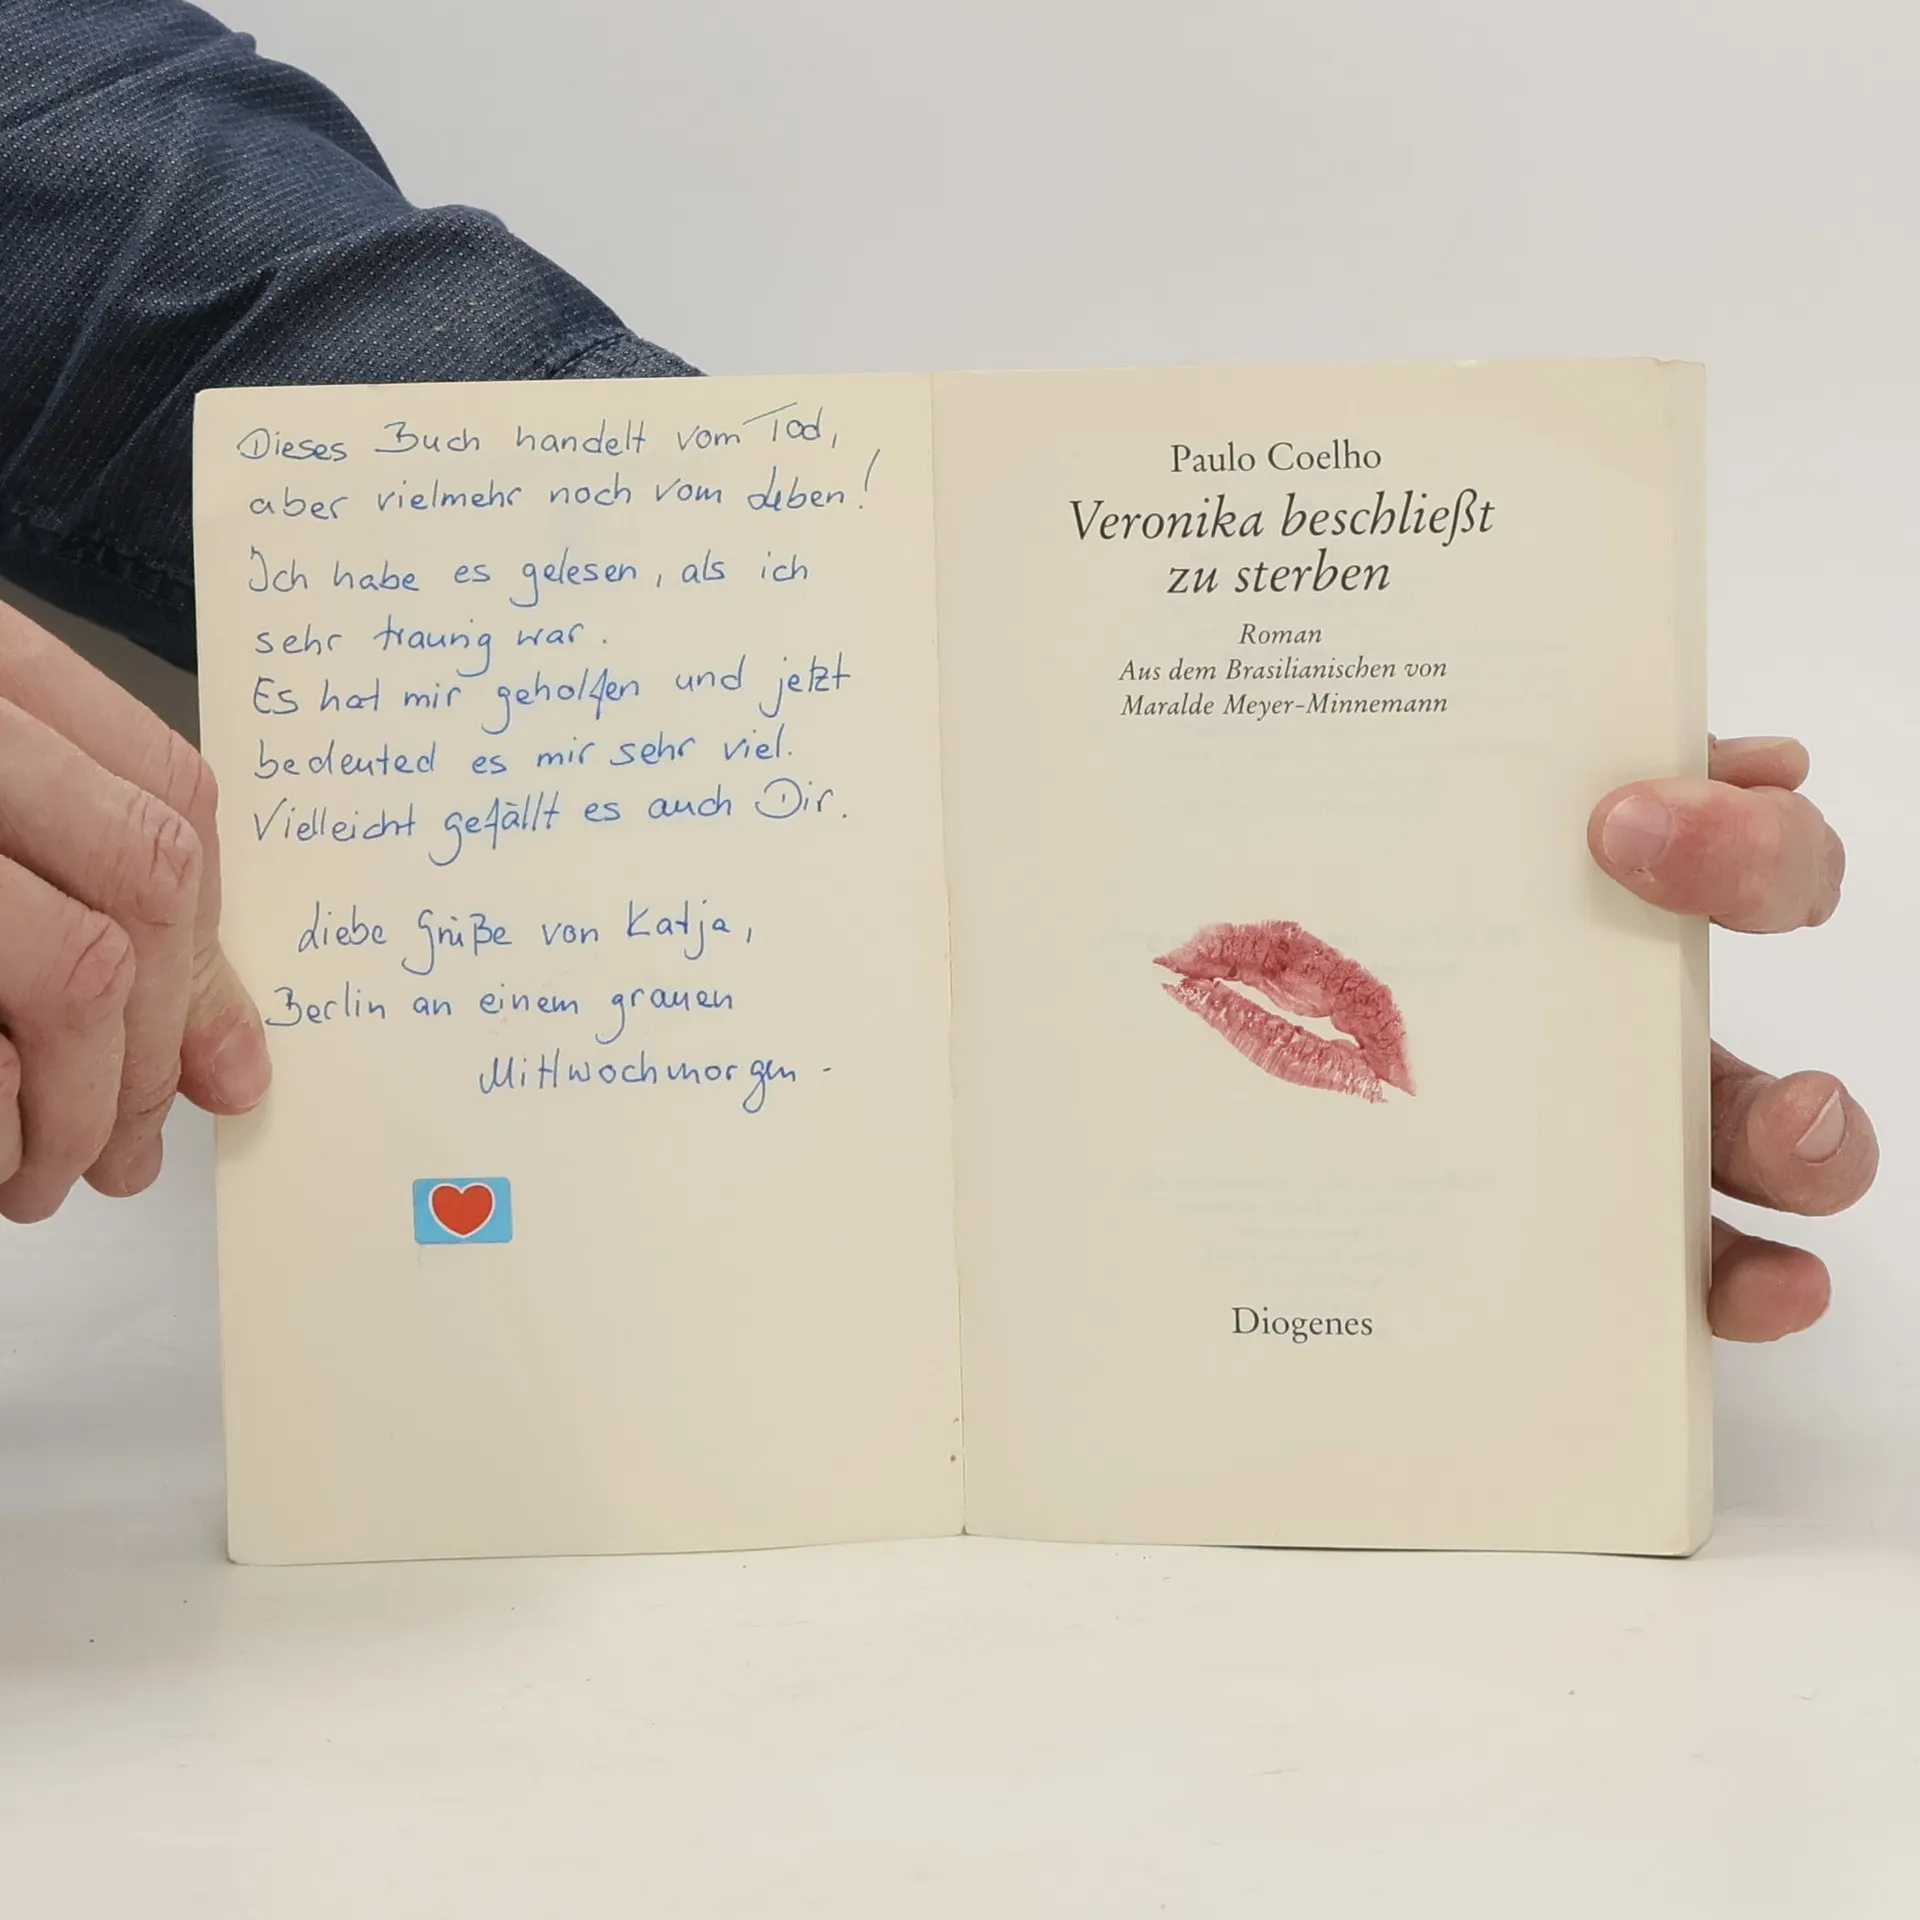 Dieses Buch handelt vom Tod,
aber vielmehr noch vom Leben!
Ich habe es gelesen, als ich
sehr traurig war.
Es hat mir geholfen und jetzt
bedeuted es mir sehr viel.
Vielleicht gefällt es auch Dir.
Liebe Grüße von Katja,
Berlin an einem grauen
Mittwochmorgen -
Paulo Coelho
Veronika beschließt
zu sterben
Roman
Aus dem Brasilianischen von
Maralde Meyer-Minnemann
Diogenes